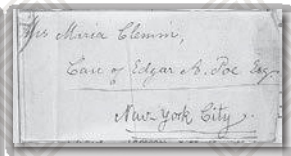 Mrs Maria Clemm,
Care of Edgar A. Poe Esq
New-York City.